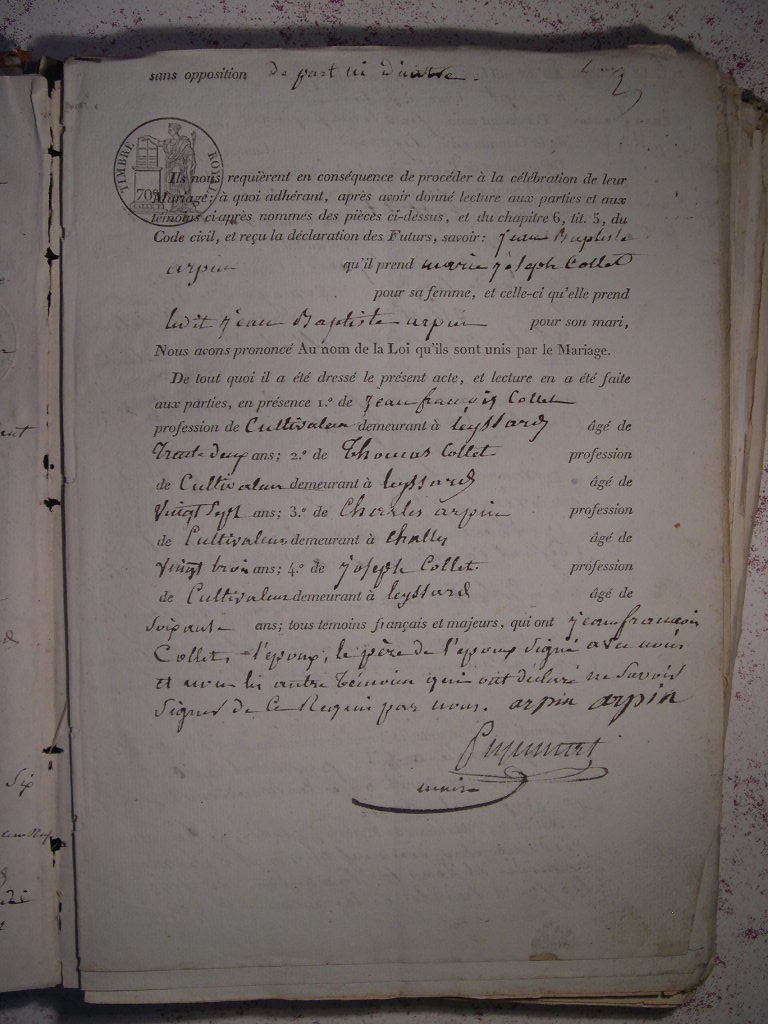 sans opposition de part ni d'autre.
2
TIMBRE ROYAL
70
Ils nous requièrent en conséquence de procéder à la célébration de leur
Mariage; à quoi adhérant, après avoir donné lecture aux parties et aux
témoins ci-après nommés des pièces ci-dessus, et du chapitre 6, tit. 5, du
Code civil, et reçu la déclaration des Futurs, savoir: jean Baptiste
arpin qu'il prend marie joseph Collet
pour sa femme, et celle-ci qu'elle prend
ledit jean Baptiste arpin pour son mari,
Nous avons prononcé Au nom de la Loi qu'ils sont unis par le Mariage.
De tout quoi il a été dressé le présent acte, et lecture en a été faite
aux parties, en présence 1.º de jean françois Collet
profession de Cultivateur demeurant à leyssard âgé de
Trente deux ans; 2.º de Thomas Collet profession
de Cultivateur demeurant à leyssard âgé de
Vingt Sept ans; 3.º de Charles arpin profession
de Cultivateur demeurant à Challes âgé de
Vingt trois ans; 4.º de joseph Collet profession
de Cultivateur demeurant à leyssard âgé de
Soixante ans; tous témoins français et majeurs, qui ont jean françois
Collet, l'epoux, le père de l'epoux Signé avec nous
et non les autre témoins qui ont déclaré ne Savoir
Signer de Ce Requis par nous. arpin arpin
maire